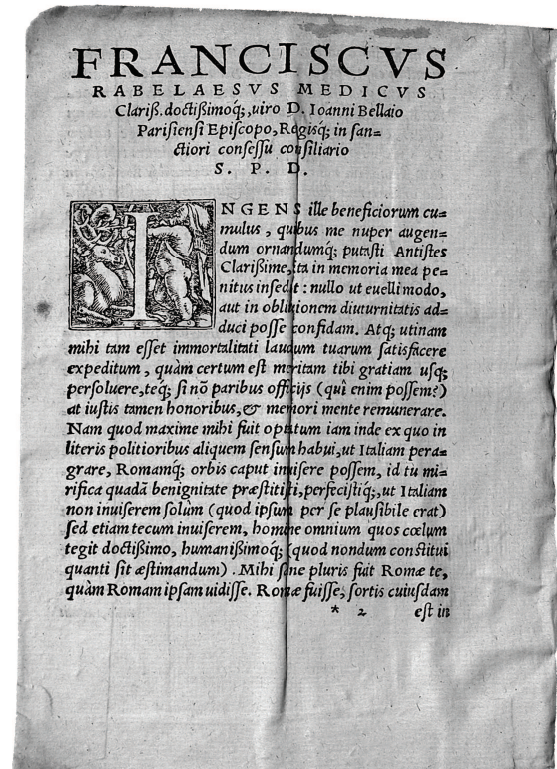 FRANCISCVS
RABELAESVS MEDICVS
Clariß. doctißimoq́;, uiro D. Ioanni Bellaio
Parisiensi Episcopo, Regisq́; in san=
ctiori consessu consiliario
S. P. D.
INGENS ille beneficiorum cu=
mulus, quibus me nuper augen=
dum ornandumq́; putasti Antistes
Clarißime, ita in memoria mea pe=
nitus insedit : nullo ut euelli modo,
aut in obliuionem diuturnitatis ad=
duci posse confidam. Atq; utinam
mihi tam esset immortalitati laudum tuarum satisfacere
expeditum, quàm certum est meritam tibi gratiam usq;
persoluere, teq́; si nō paribus officijs (quî enim possem?)
at iustis tamen honoribus, & memori mente remunerare.
Nam quod maxime mihi fuit optatum iam inde ex quo in
literis politioribus aliquem sensum habui, ut Italiam pera=
grare, Romamq́; orbis caput inuisere possem, id tu mi=
rifica quadā benignitate præstitisti, perfecistiq́;, ut Italiam
non inuiserem solùm (quod ipsum per se plausibile erat)
sed etiam tecum inuiserem, homine omnium quos cœlum
tegit doctißimo, humanißimoq́; (quod nondum constitui
quanti sit æstimandum). Mihi sane pluris fuit Romæ te,
quàm Romam ipsam uidisse. Romæ fuisse, sortis cuiusdam
* 2 est in